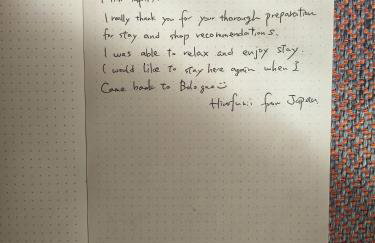 I really thank you for your thorough preparation
for stay and shop recommendations.
I was able to relax and enjoy stay.
I would like to stay here again when I
Came back to Bologna
from Japan